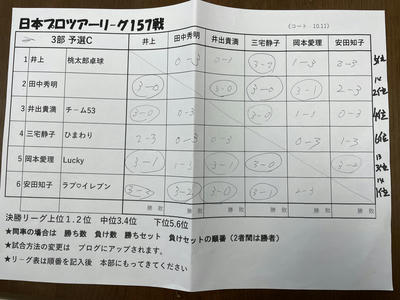 日本プロツアーリーグ157戦
(コート 10.11)
3部 予選C 井上 田中秀明 井出貴満 三宅静子 岡本愛理 安田知子
1 井上 桃太郎卓球 0-3 0-1 3-2 1-3 2-3 5位
2 田中秀明 3-0 3-0 3-0 3-1 2-3 2位
3 井出貴満 チーム53 3-0 0-3 3-0 1-3 0-3 4位
4 三宅静子 ひまわり 2-3 0-3 0-3 0-3 1-3 6位
5 岡本愛理 Lucky 3-1 1-3 3-1 3-0 3-2
6 安田知子 ラブ♡イレブン 3-2 3-2 3-0 3-1 2-3 1位
勝 敗 勝 敗 勝 敗 勝 敗 勝 敗 勝 敗
決勝リーグ上位1.2位 中位3.4位 下位5.6位
★同率の場合は 勝ち数 負け数 勝ちセット 負けセットの順番(2者間は勝者)
★試合方法の変更は ブログにアップされます。
★リーグ表は順番を記入後 本部にもってきてください